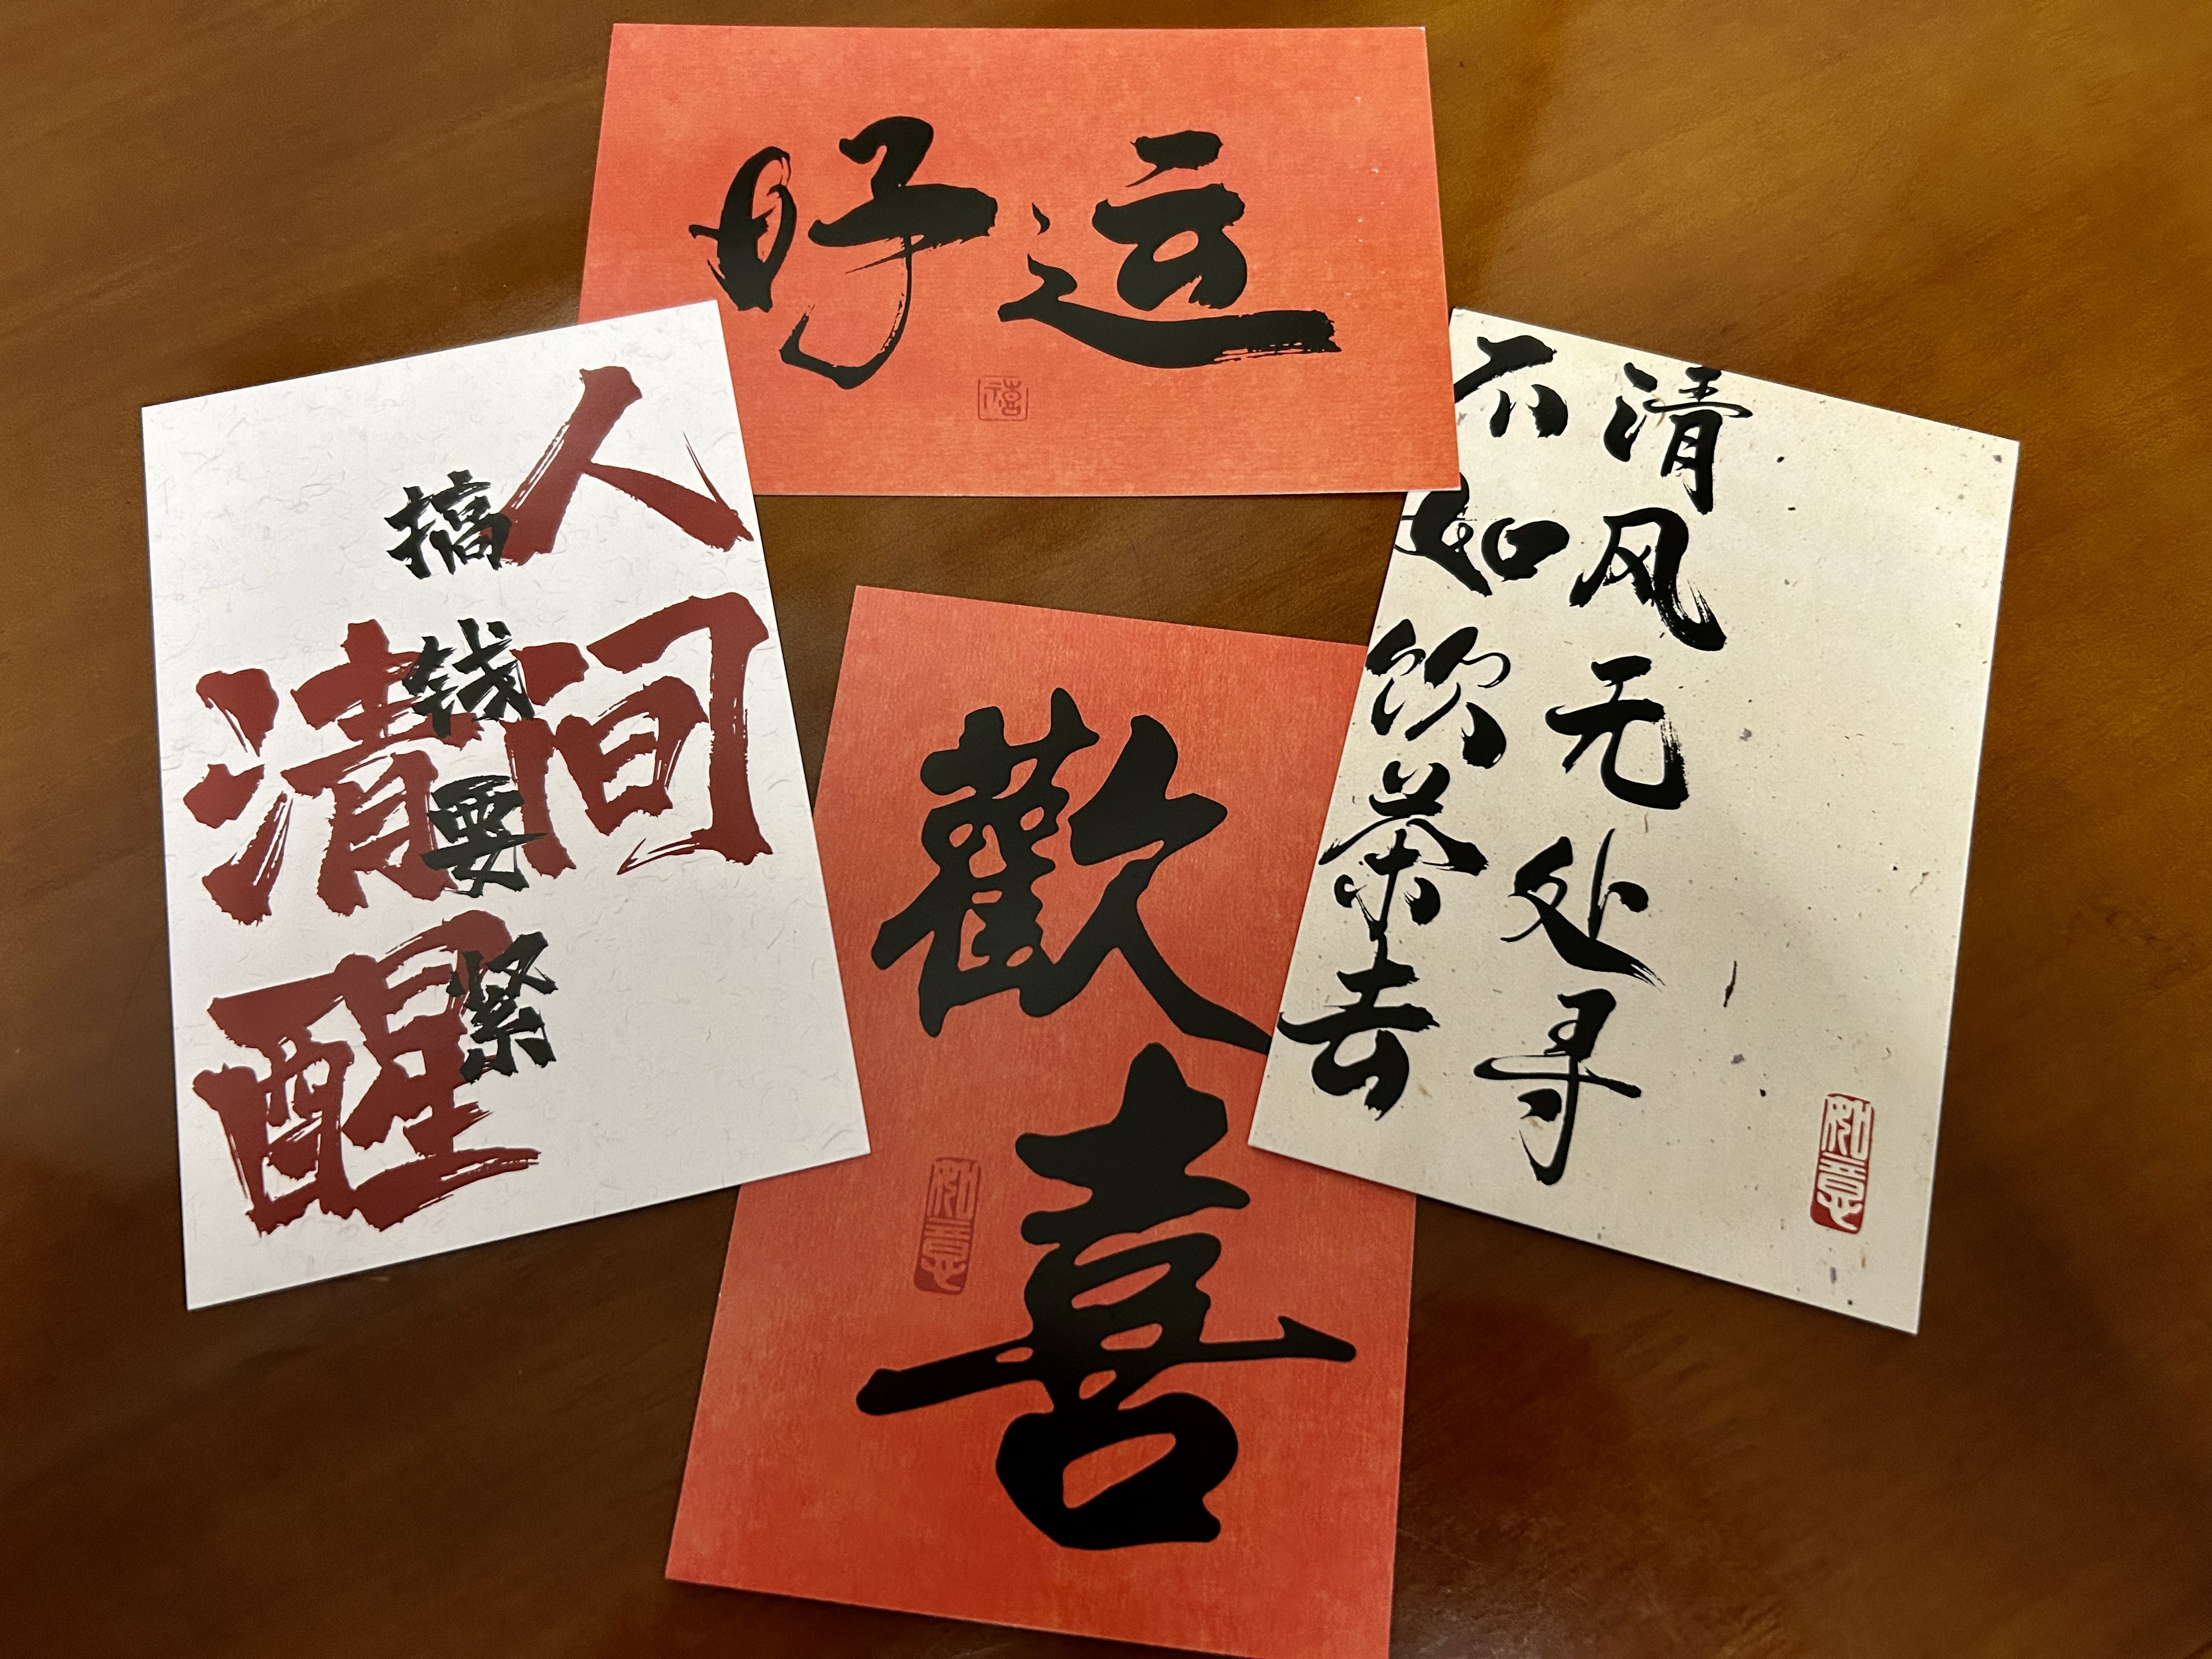 好运
禧
人间
清醒
搞钱要紧
清风无处寻
不如饮茶去
如意
歡喜
如意